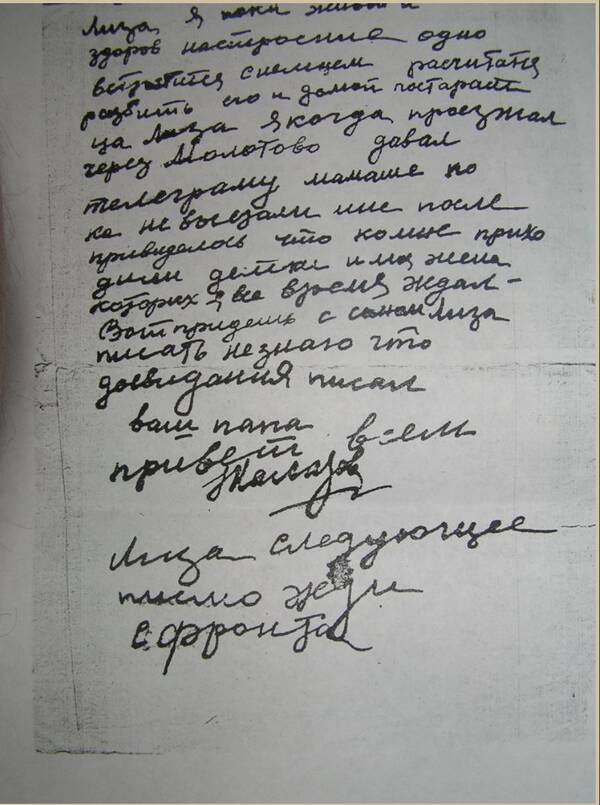 Лиза, я пока живой и
здоров настроение одно
встретится снемцем расчитатся
разбить его и домой постараит
ца Лиза якогда проезжал
через Молотово давал
телеграму мамаше по
ка не выезали мне после
привиделось что комне прихо
дили детки и моя жена
которих я все время ждал-
Вот придешь с сыном Лиза
писать незнаю что
досвидания писал
ваш папа
привет всем
Лиза следующее
писмо жди
сфронта